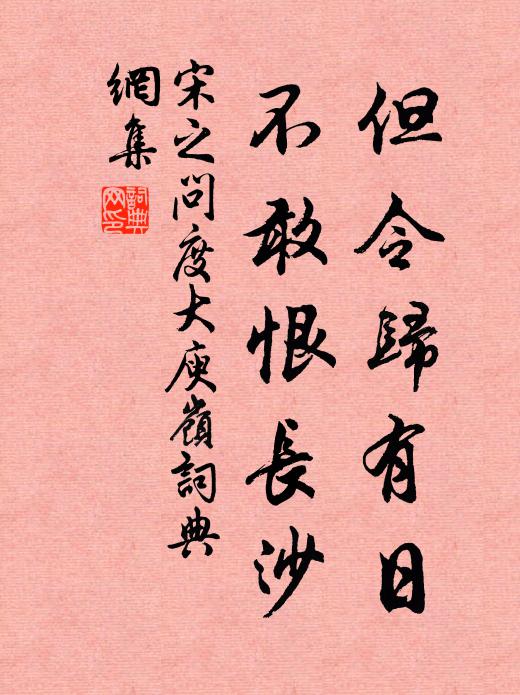 但令歸有日
不敢恨長沙
宋之問度大庾嶺詞典
網集
詞典
网印